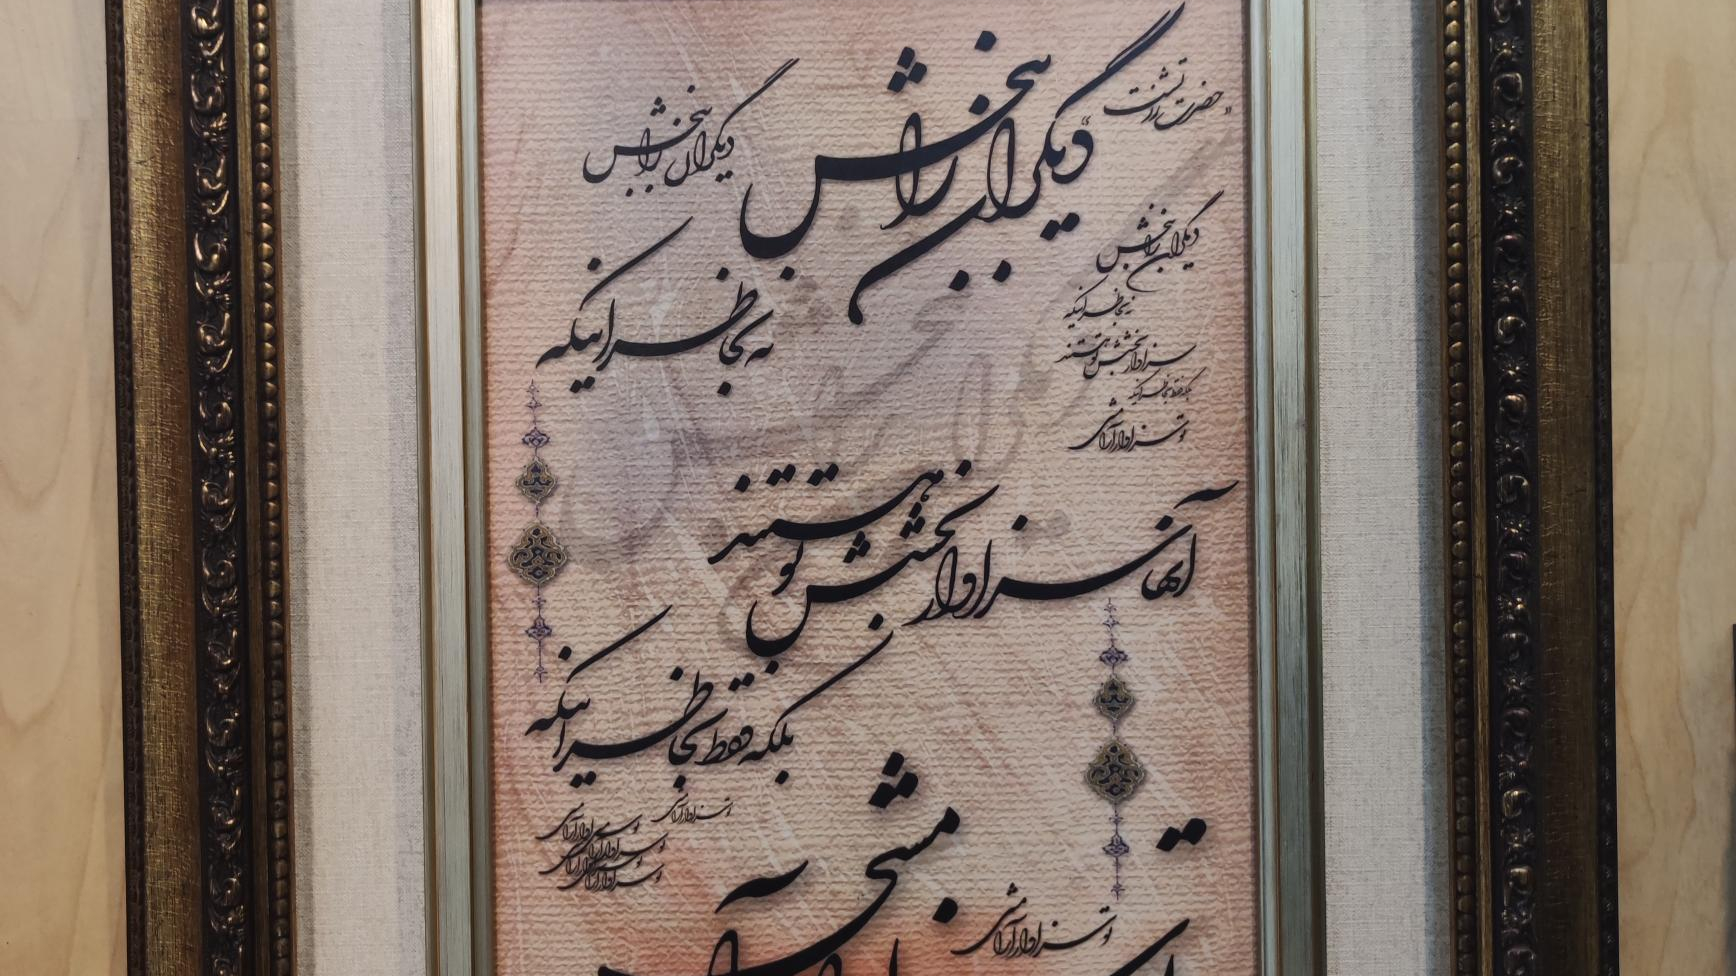 حضرت زرتشت
دیگران را ببخش
دیگران را ببخش
دیگران را ببخش
نه بخاطر اینکه
نه بخاطر اینکه
سزاوار بخشش تو هستند
بلکه فقط بخاطر اینکه
تو سزاوار آرامشی
آنها سزاوار بخشش تو هستند
بلکه فقط بخاطر اینکه
تو سزاوار آرامشی
تو سزاوار آرامشی
تو سزاوار آرامشی
تو سزاوار آرامشی
تو سزاوار آرامشی
تو سزاوار آرامشی